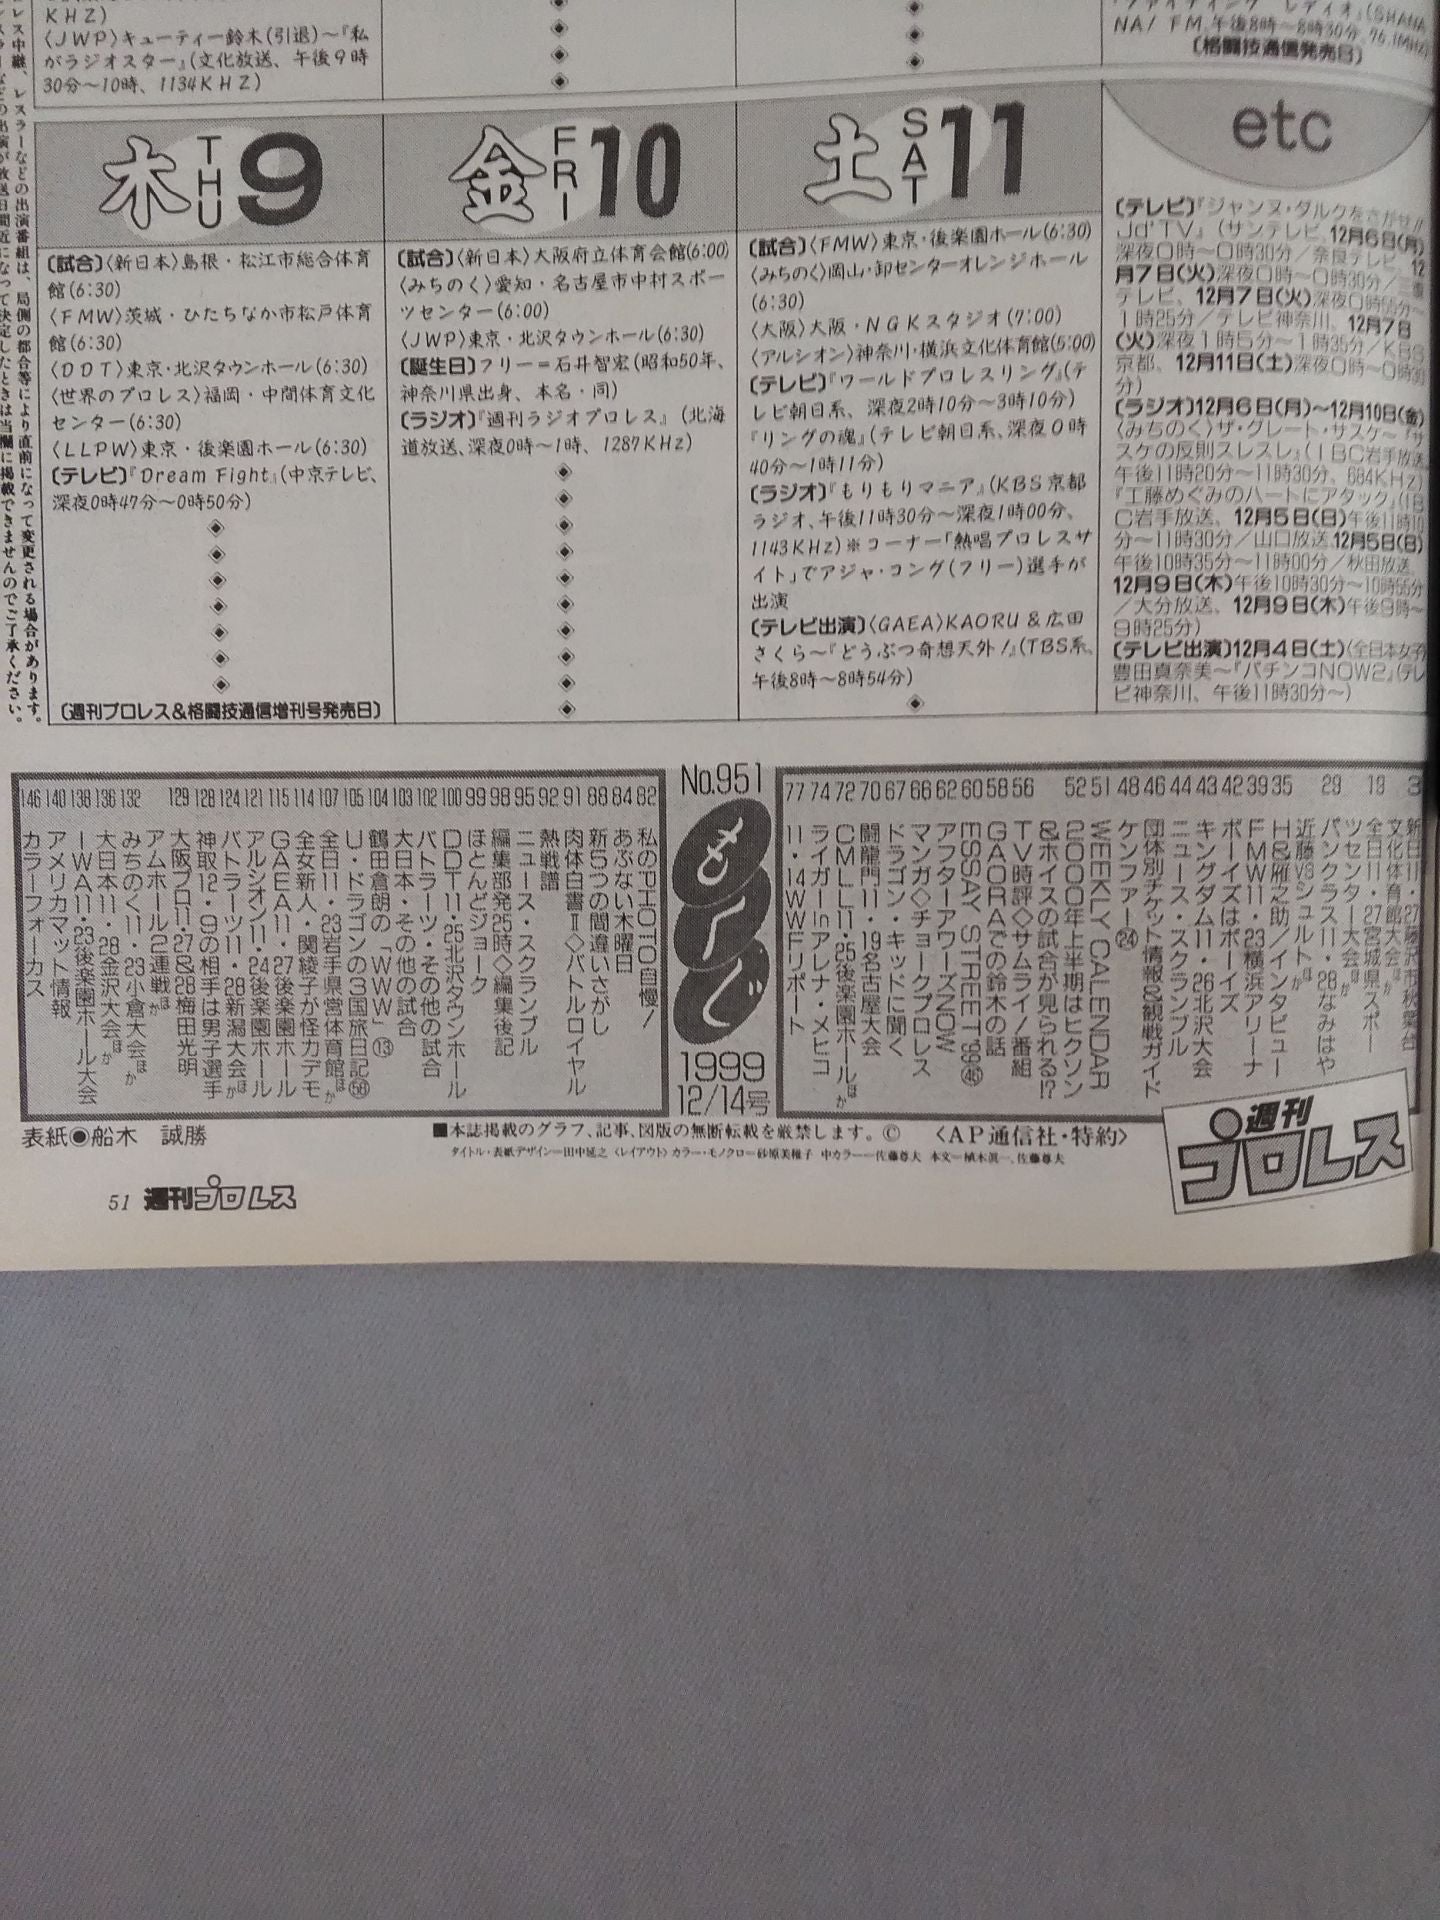 KHZ)
〈JWP〉キューティー鈴木(引退)〜『私
がラジオスター』(文化放送、午後9時
30分〜10時、1134KHZ)
NA/ FM、午後8時〜8時30分、76.1MHz)
〔格闘技通信発売日〕
木 THU 9
〔試合〕〈新日本〉島根・松江市総合体育
館(6:30)
〈FMW〉茨城・ひたちなか市松戸体育
館(6:30)
〈DDT〉東京・北沢タウンホール(6:30)
〈世界のプロレス〉福岡・中間体育文化
センター(6:30)
〈LLPW〉東京・後楽園ホール(6:30)
〔テレビ〕『Dream Fight』(中京テレビ、
深夜0時47分〜0時50分)
〔週刊プロレス&格闘技通信増刊号発売日〕
金 FRI 10
〔試合〕〈新日本〉大阪府立体育会館(6:00)
〈みちのく〉愛知・名古屋市中村スポー
ツセンター(6:00)
〈JWP〉東京・北沢タウンホール(6:30)
〔誕生日〕フリー=石井智宏(昭和50年、
神奈川県出身、本名・同)
〔ラジオ〕『週刊ラジオプロレス』(北海
道放送、深夜0時〜1時、1287KHz)
土 SAT 11
〔試合〕〈FMW〉東京・後楽園ホール(6:30)
〈みちのく〉岡山・卸センターオレンジホール
(6:30)
〈大阪〉大阪・NGKスタジオ(7:00)
〈アルシオン〉神奈川・横浜文化体育館(5:00)
〔テレビ〕『ワールドプロレスリング』(テ
レビ朝日系、深夜2時10分〜3時10分)
『リングの魂』(テレビ朝日系、深夜0時
40分〜1時11分)
〔ラジオ〕『もりもりマニア』(KBS京都
ラジオ、午後11時30分〜深夜1時00分、
1143KHz)※コーナー「熱唱プロレスサ
イト」でアジャ・コング(フリー)選手が
出演
〔テレビ出演〕〈GAEA〉KAORU&広田
さくら〜『どうぶつ奇想天外!』(TBS系、
午後8時〜8時54分)
etc
〔テレビ〕『ジャンヌ・ダルクをさがせ!!
Jd'TV』(サンテレビ、12月6日(月)
深夜0時〜0時30分/奈良テレビ、12
月7日(火)深夜0時〜0時30分/三重
テレビ、12月7日(火)深夜0時55分〜
1時25分/テレビ神奈川、12月7日
(火)深夜1時5分〜1時35分/KBS
京都、12月11日(土)深夜0時〜0時30
分)
〔ラジオ〕12月6日(月)〜12月10日(金)
〈みちのく〉ザ・グレート・サスケ〜『サ
スケの反則スレスレ』(IBC岩手放送、
午後11時20分〜11時30分、684KHz)
『工藤めぐみのハートにアタック』(IB
C岩手放送、12月5日(日)午後11時10
分〜11時30分/山口放送、12月5日(日)
午後10時35分〜11時00分/秋田放送、
12月9日(木)午後10時30分〜10時55分
/大分放送、12月9日(木)午後9時〜
9時25分)
〔テレビ出演〕12月4日(土)〈全日本女子〉
豊田真奈美〜『パチンコNOW2』(テレ
ビ神奈川、午後11時30分〜)
レス中継、レスラーなどの出演番組は、局側の都合等により直前になって変更される場合があります。
などの出演が放送日間近になって決定したときは当欄に掲載できませんのでご了承ください。
No.951
もくじ
1999
12/14号
3 新日11・27藤沢市秋葉台
文化体育館大会ほか
19 全日本11・27宮城県スポー
ツセンター大会ほか
29 パンクラス11・28なみはや
近藤VSシュルトほか
35 H&雁之助/インタビュー
39 FMW11・23横浜アリーナ
42 ボーイズはボーイズ
43 キングダム11・26北沢大会
44 ニュース・スクランブル
46 団体別チケット情報&観戦ガイド
48 ケンファー㉔
51 WEEKLY CALENDAR
52 2000年上半期はヒクソン
&ホイスの試合が見られる!?
56 TV時評◇サムライ!番組
58 GAORAでの鈴木の話
60 ESSAY STREET'99㊺
62 アフターアワーズNOW
66 マンガ◇チョークプロレス
67 ドラゴン・キッドに聞く
70 闘龍門11・19名古屋大会
72 CMLL11・25後楽園ホールほか
74 ライガーinアレナ・メヒコ
77 11・14WWFリポート
82 私のPHOTO自慢!
84 あぶない木曜日
88 新5つの間違いさがし
91 肉体白書Ⅱ◇バトルロイヤル
92 熱戦譜
95 ニュース・スクランブル
98 編集部発25時◇編集後記
99 ほとんどジョーク
100 DDT11・25北沢タウンホール
102 バトラーツ・その他の試合
103 大日本・その他の試合
104 鶴田倉朗の「WWW」⑬
105 U・ドラゴンの3国旅日記㊿
107 全日11・23岩手県営体育館ほか
114 全女新人・関綾子が怪力デモ
115 GAEA11・27後楽園ホール
121 アルシオン11・24後楽園ホール
124 バトラーツ11・28新潟大会ほか
128 神取12・9の相手は男子選手
129 大阪プロ11・27&28梅田光明
アムホール2連戦ほか
132 みちのく11・23小倉大会ほか
136 大日本11・28金沢大会ほか
138 IWA11・23後楽園ホール大会
140 アメリカマット情報
146 カラーフォーカス
表紙◉船木 誠勝
■本誌掲載のグラフ、記事、図版の無断転載を厳禁します。© 〈AP通信社・特約〉
タイトル・表紙デザイン=田中延之 〈レイアウト〉カラー・モノクロ=砂原美稚子 中カラー=佐藤尊夫 本文=植木眞一、佐藤尊夫
週刊プロレス
51 週刊プロレス